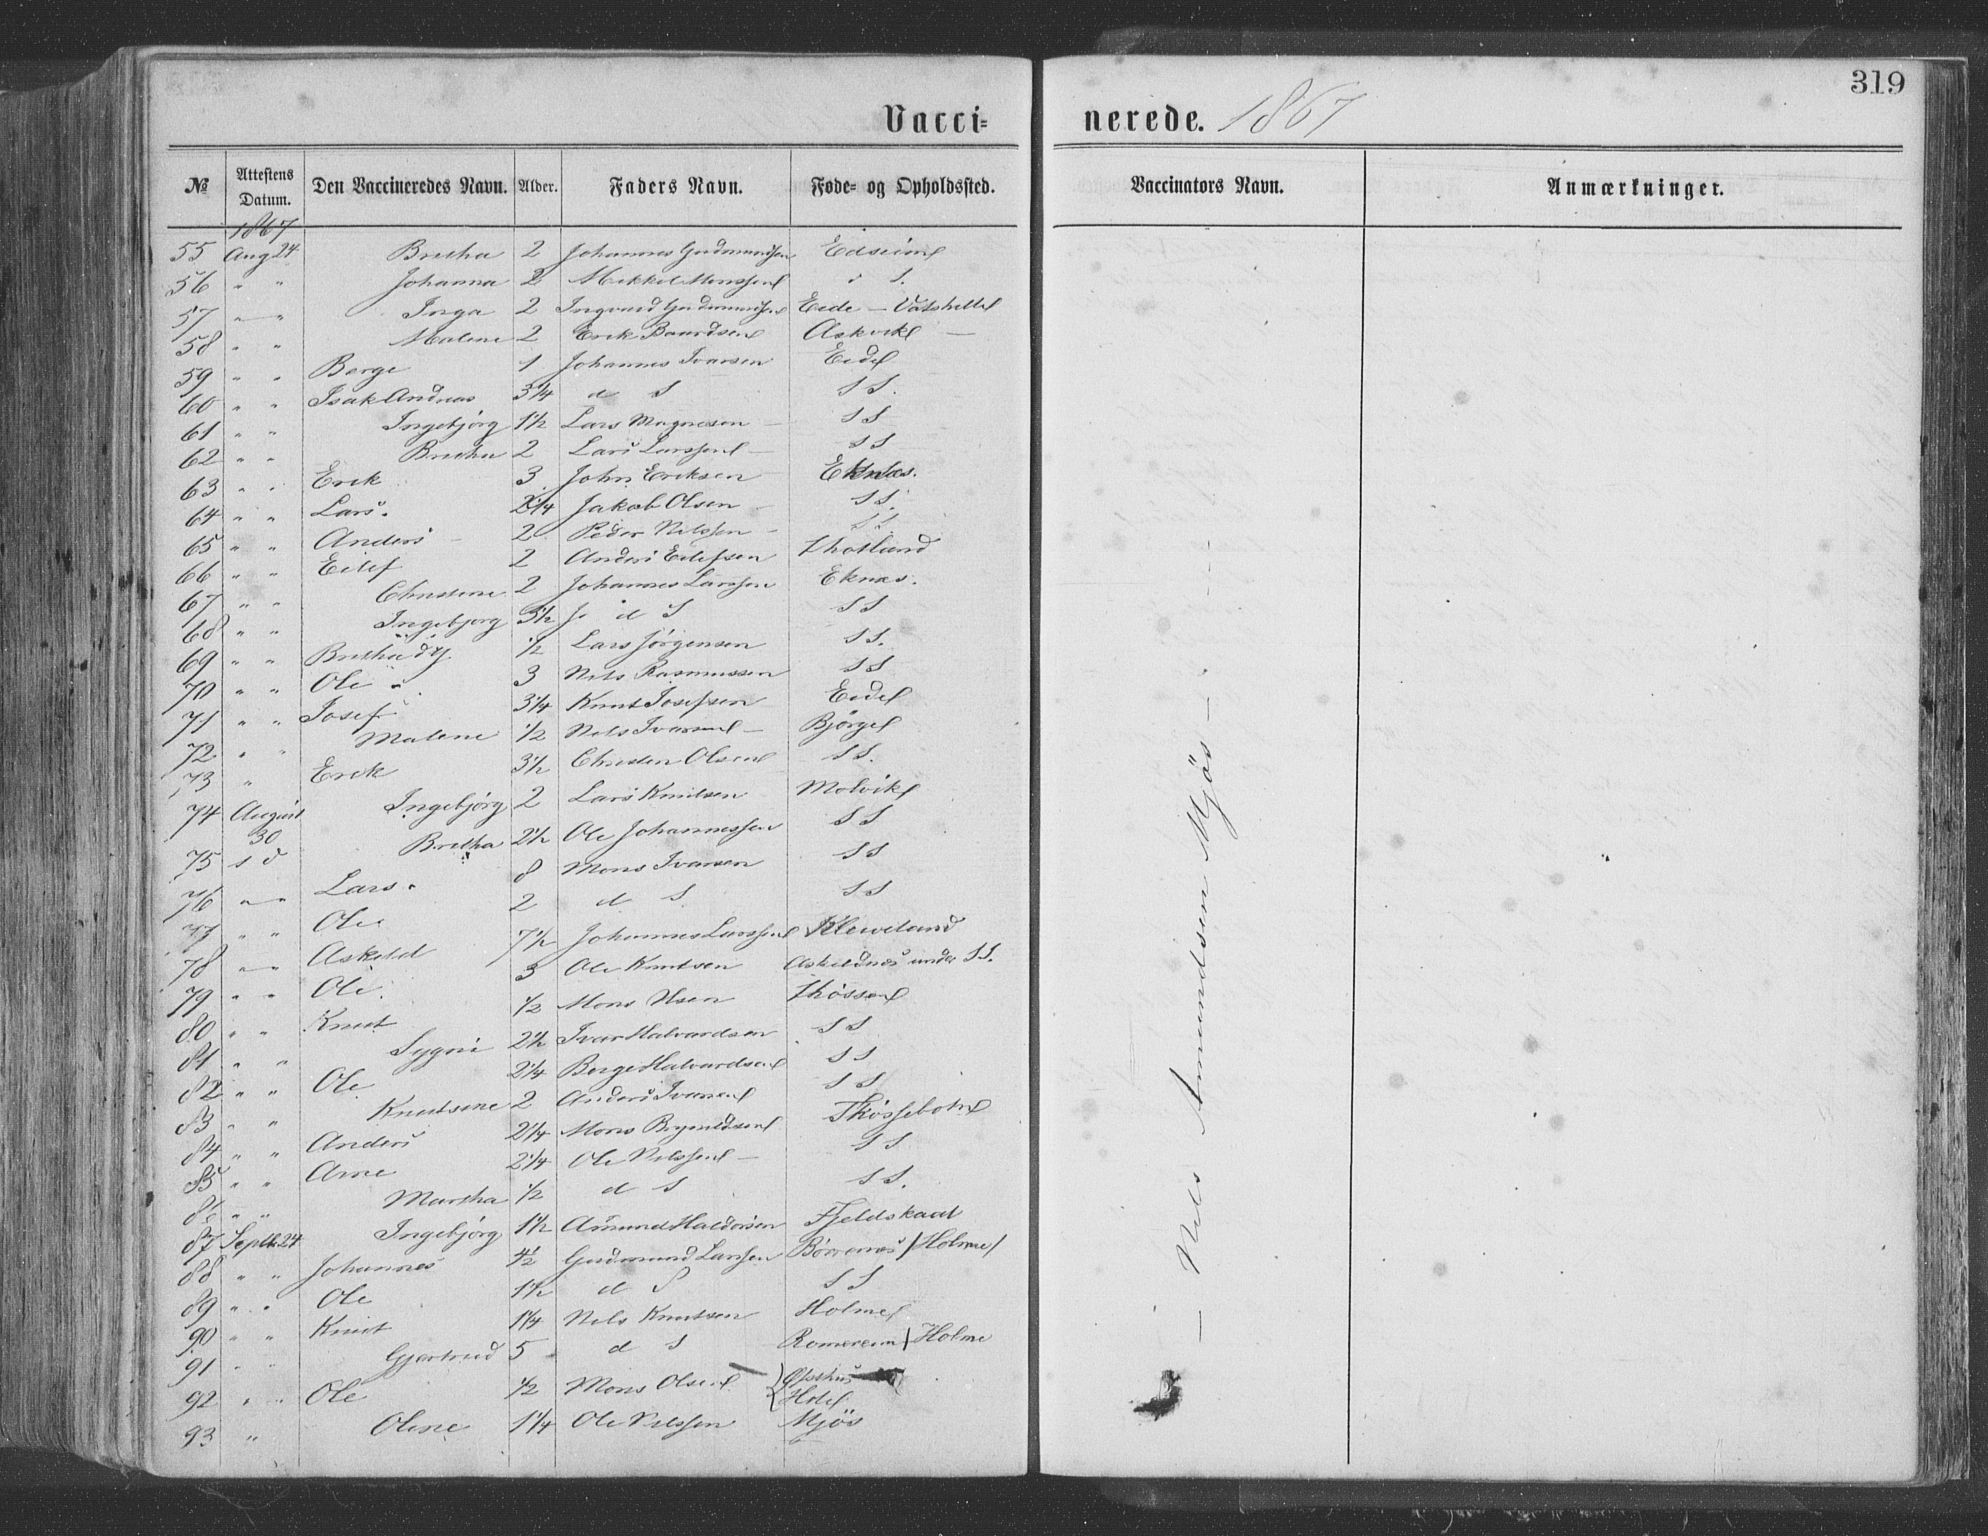 319
Vacci=nerede. 1867
№ Attestens Datum. Den Vaccineredes Navn. Alder. Faders Navn. Føde= og Opholdssted. Vaccinators Navn. Anmærkninger.
1867
55 Aug 24 Bretha 2 Johannes Gudmundsen Edseim
56 " " Johanna 2 Mikkel Monssen d S.
57 " " Inga 2 Ingvard Gudmundsen Eide - Vatshelle
58 " " Malene 2 Erik Baardsen Askvik -
59 " " Berge 1 Johannes Ivarsen Eide
60 " " Isak Andreas 3 1/4 d S S S.
61 " " Ingebjörg 1 1/2 Lars Magnesen - S S
62 " " Bretha 2 Lars Larssen - S S
63 " " Erik 3 John Eriksen - Eknæs.
64 " " Lars. 2 1/4 Jakob Olsen - S S.
65 " " Anders - 2 Peder Nilssen - S S
66 " " Eilef 2 Anders Eilefsen Thotland
67 " " Christene 2 Johannes Larssen Eknæs.
68 " " Ingebjörg 3 1/2 J. d S S S
69 " " Bretha 1/2 Lars Jörgensen S S.
70 " " Ole 3 Nils Rasmussen S S
71 " " Josef 3 1/4 Knut Josefsen Eide
72 " " Malene 1/2 Nils Ivarsen - Björge
73 " Erik 3 1/2 Christen Olsen S S.
74 August 30 Ingebjörg 2 Lars Knutsen Molvik
75 s d Bretha 2 1/2 Ole Johannessen S S
76 " " Lars. 8 Mons Ivarsen S S
77 " " Ole 2 d S S S
78 " " Askeld 7 1/2 Johannes Larssen Kleiveland
79 " " Ole 3 Ole Knutsen Askeldnes under S S.
80 " " Knut 1/2 Mons Olsen
81 " " Sygni 2 1/2 Ivar Halvardsen S S
82 " " Ole 2 1/4 Berge Halvardsen S S
83 " " Knutsine 2 Anders Ivarsen S S
84 " " Anders 2 1/4 Mons Brynildsen
85 " " Arne 2 1/4 Ole Nilssen - S S
86 " " Martha 1/2 d S S S.
87 Septb. 24 Ingebjörg 1 1/2 Amund Haldorsen Fjeldskaal
88 " " Johannes 4 1/2 Gudmund Larssen Börrenæs /Holme/
89 " " Ole 1 1/2 d S S S
90 " " Knut 1 1/4 Nils Knutsen Holme
91 " " Gjertrud 5 d S Romereim / Holme
92 " " Ole 1/2 Mons Olsen
93 " Oline 1 1/4 Ole Nilssen Mjös
- Nils Amundsen Mjös -